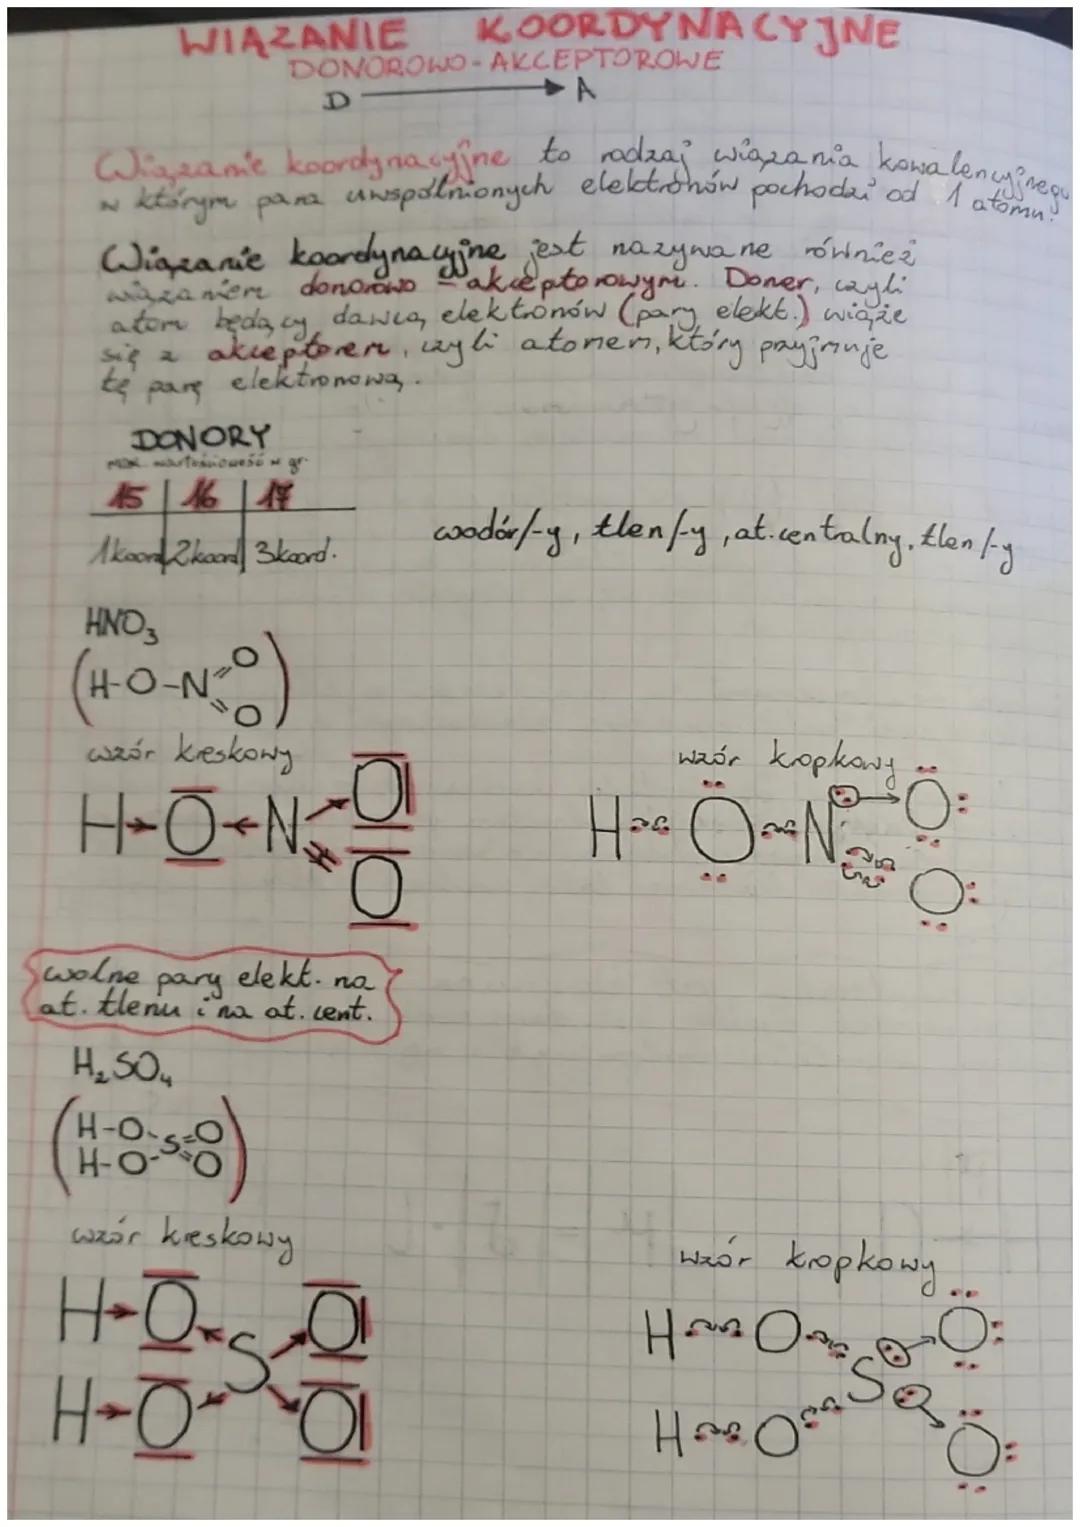 WIĄZANIE KOORDYNACYJNE
DONOROWO-AKCEPTOROWE
D → A
Wiązanie koordynacyjne to rodzaj wiązania kowalencyjnego
w którym para uwspólnionych elektronów pochodzi od 1 atomu.
Wiązanie koordynacyjne jest nazywane również
wiązaniem donorowo-akceptorowym. Doner, czyli
atom będący dawcą elektronów (pary elekt.) wiąże
się z akceptorem, czyli atomem, który przyjmuje
tę parę elektronową.
DONORY
max. wartościowość w gr.
15 | 16 | 17
1koord | 2koord | 3koord.
wodór/-y, tlen/-y, at.centralny, tlen/-y
HNO₃
(H-O-N=O
=O)
wzór kreskowy
wzór kropkowy
H O N O
O
H O N O
O
wolne pary elekt. na
at. tlenu i na at. cent.
H₂SO₄
(H-O-S=O
H-O- =O)
wzór kreskowy
wzór kropkowy
H O S O
H O O
H O S O
H O O